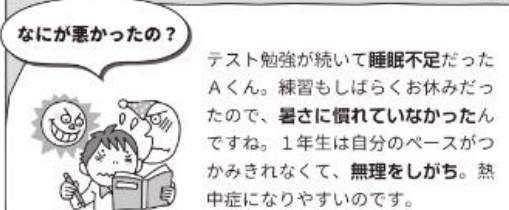 なにが悪かったの？
テスト勉強が続いて睡眠不足だった
Aくん。練習もしばらくお休みだっ
たので、暑さに慣れていなかったん
ですね。1年生は自分のペースがつ
かみきれなくて、無理をしがち。熱
中症になりやすいのです。